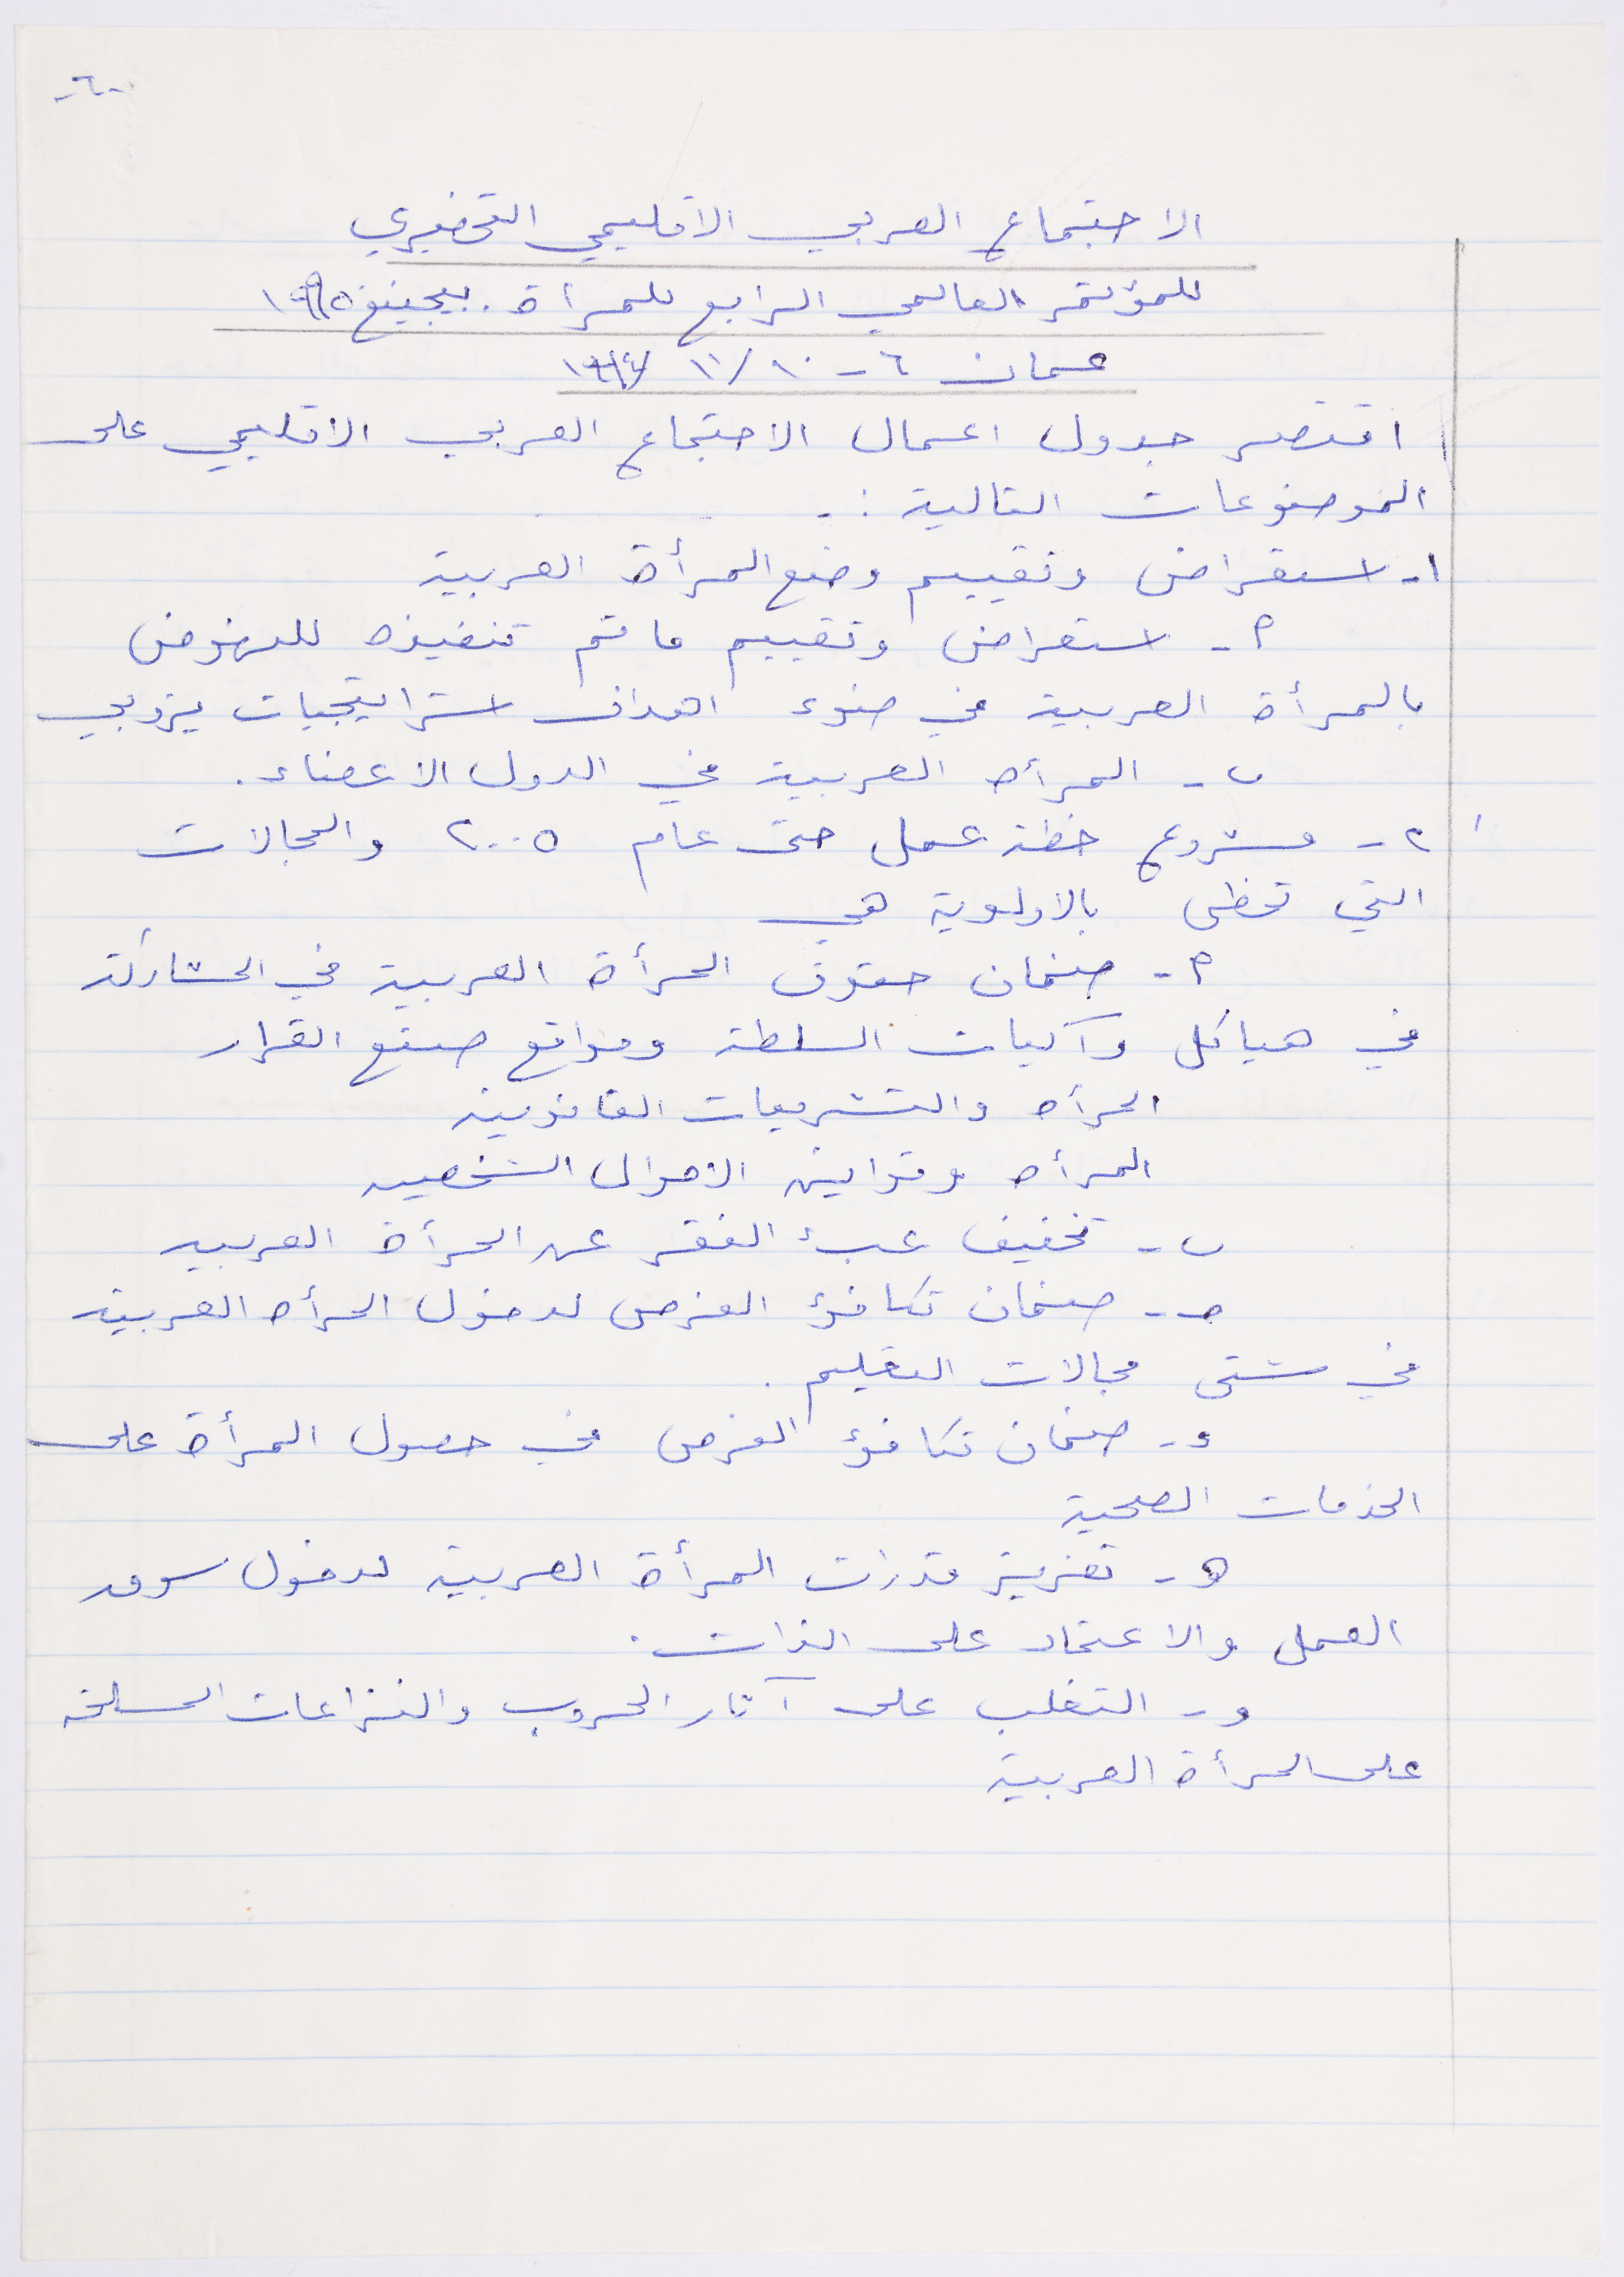 -٦-
الاجتماع العربي الاقليمي التحضيري
للمؤتمر العالمي الرابع للمرأة . بيجينغ ١٩٩٥
عمان ٦ - ١٠ / ١١ / ١٩٩٤
اقتصر جدول اعمال الاجتماع العربي الاقليمي على
الموضوعات التالية :-
١- استعراض وتقييم وضع المرأة العربية
٢- استعراض وتقييم ما تم تنفيذه للنهوض
بالمرأة العربية في ضوء اهداف استراتيجيات نيروبي
ب- المرأه العربية في الدول الاعضاء .
٢- مشروع خطة عمل حتى عام ٢٠٠٥ والمجالات
التي تحظى بالاولوية هي
أ- ضمان حقوق المرأة العربية في المشاركة
في هياكل وآليات السلطة ومواقع صنع القرار
المرأه والتشريعات القانونية
المرأه وقوانين الاحوال الشخصيه
ب- تخفيف عبء الفقر عن المرأة العربيه
حـ- ضمان تكافؤ الفرص لدخول المرأه العربية
في شتى مجالات التعليم .
د- ضمان تكافؤ الفرص في حصول المرأة على
الخدمات الصحية
هـ- تعزيز قدرات المرأة العربية لدخول سوق
العمل والاعتماد على الذات .
و- التغلب على آثار الحروب والنزاعات المسلحة
على المرأة العربية